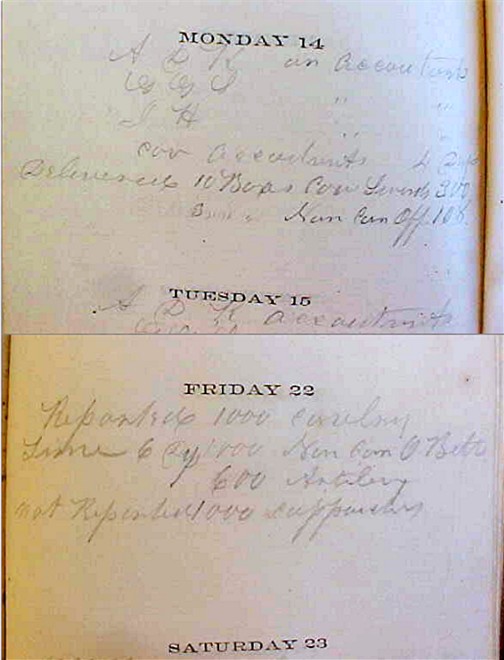 MONDAY 14
A D K on Accoutrents
G G S " "
J H " "
cov accoutrints 4 Dys
Delivered 10 Boxes Cav Swords 300
3 " Non Com Off 108
TUESDAY 15
A D K accoutrints
FRIDAY 22
Reported 1000 cavelry
Time 6 Dys 1000 Non Com O Belts
600 Artilery
not Reported 1000 supporters
SATURDAY 23